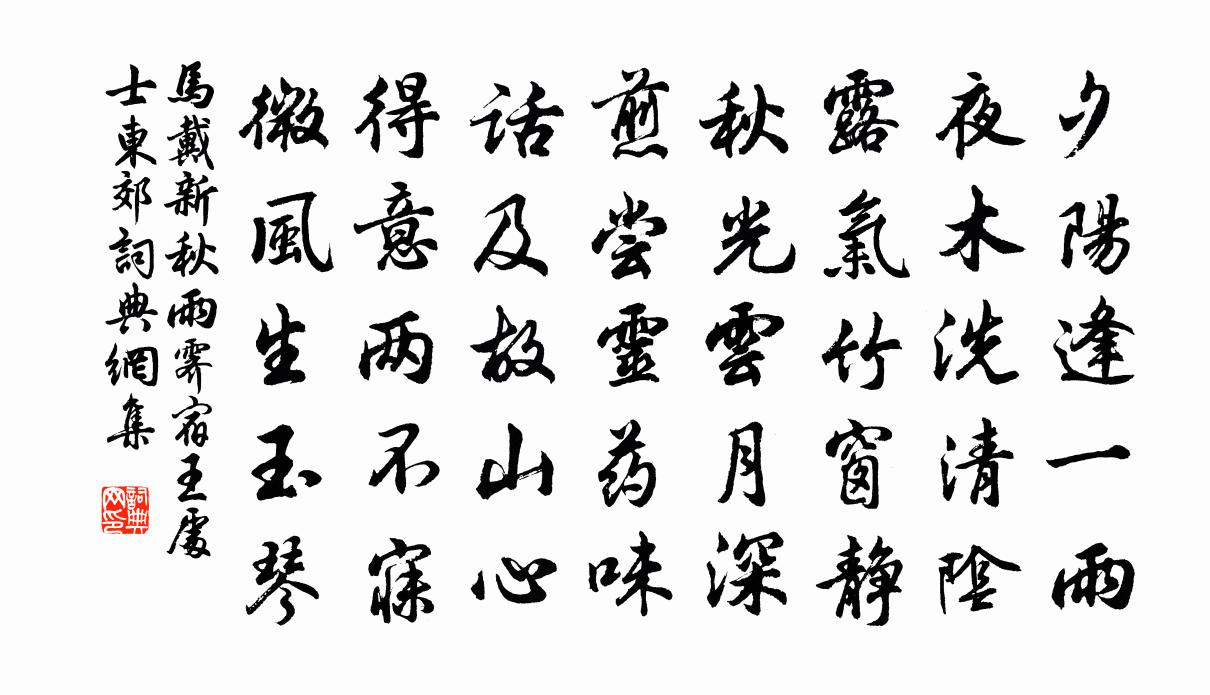 夕陽逢一雨
夜木洗清陰
露氣竹窗静
秋光雲月深
煎尝靈药味
话及故山心
得意两不寐
微風生玉琴
馬戴新秋雨霽宿王處
士東郊詞典網集
詞典
网印